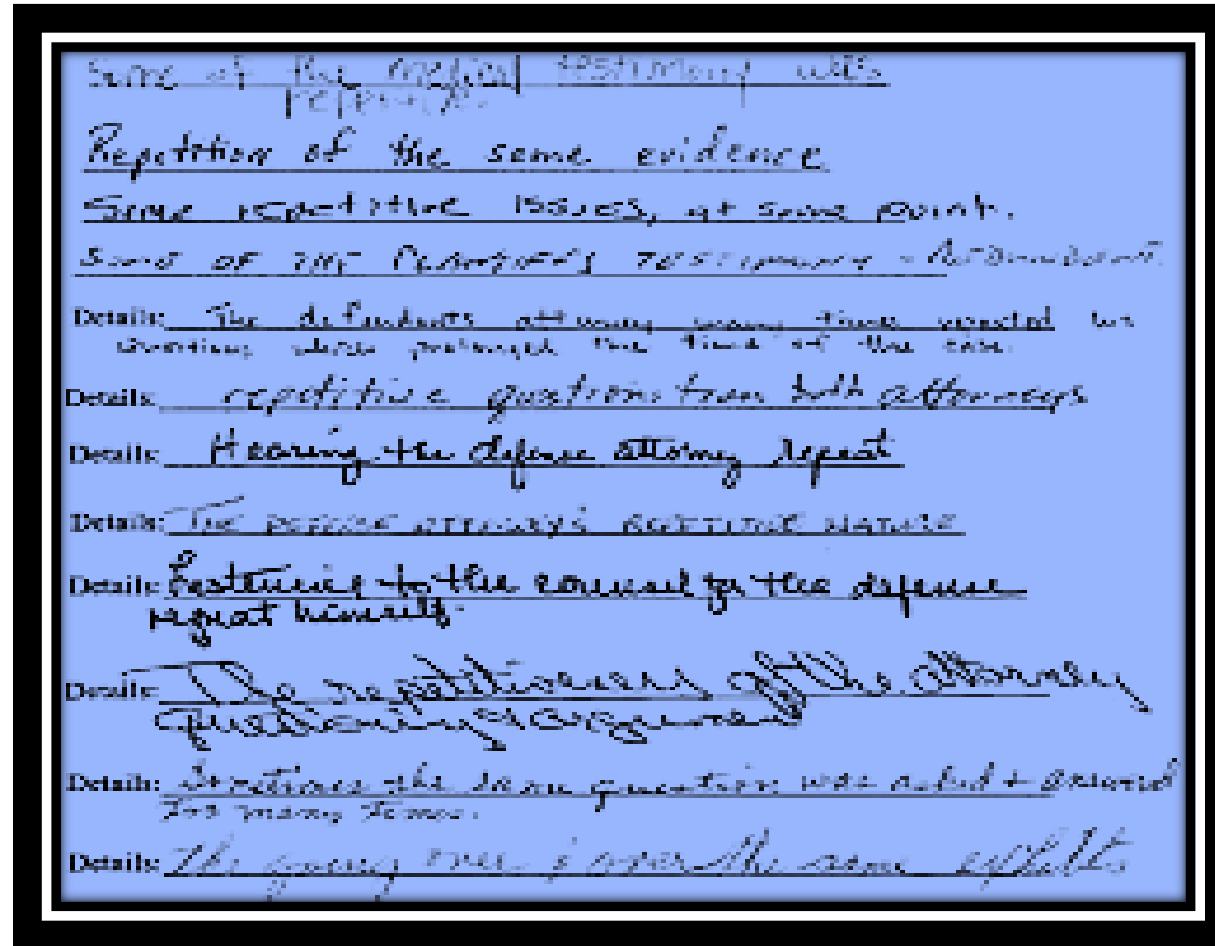 Some of the medical testimony was
repetitive.
Repetition of the same evidence
Some repetitive issues, at some point.
SOME OF THE PLAINTIFF'S TESTIMONY - REDUNDANT.
Details: The defendants attorney many times repeated his
questions which prolonged the time of the case.
Details: repetitive questions from both attorneys
Details: Hearing the defense attorny repeat
Details: THE DEFENSE ATTORNEY'S REPETITIVE NATURE
Details: Listening to the counsel for the defense
repeat himself.
Details: The repetitiveness of the attorney
questioning & argument
Details: Sometimes the same question was asked + answered
too many times.
Details: The going over & over the same exhibits